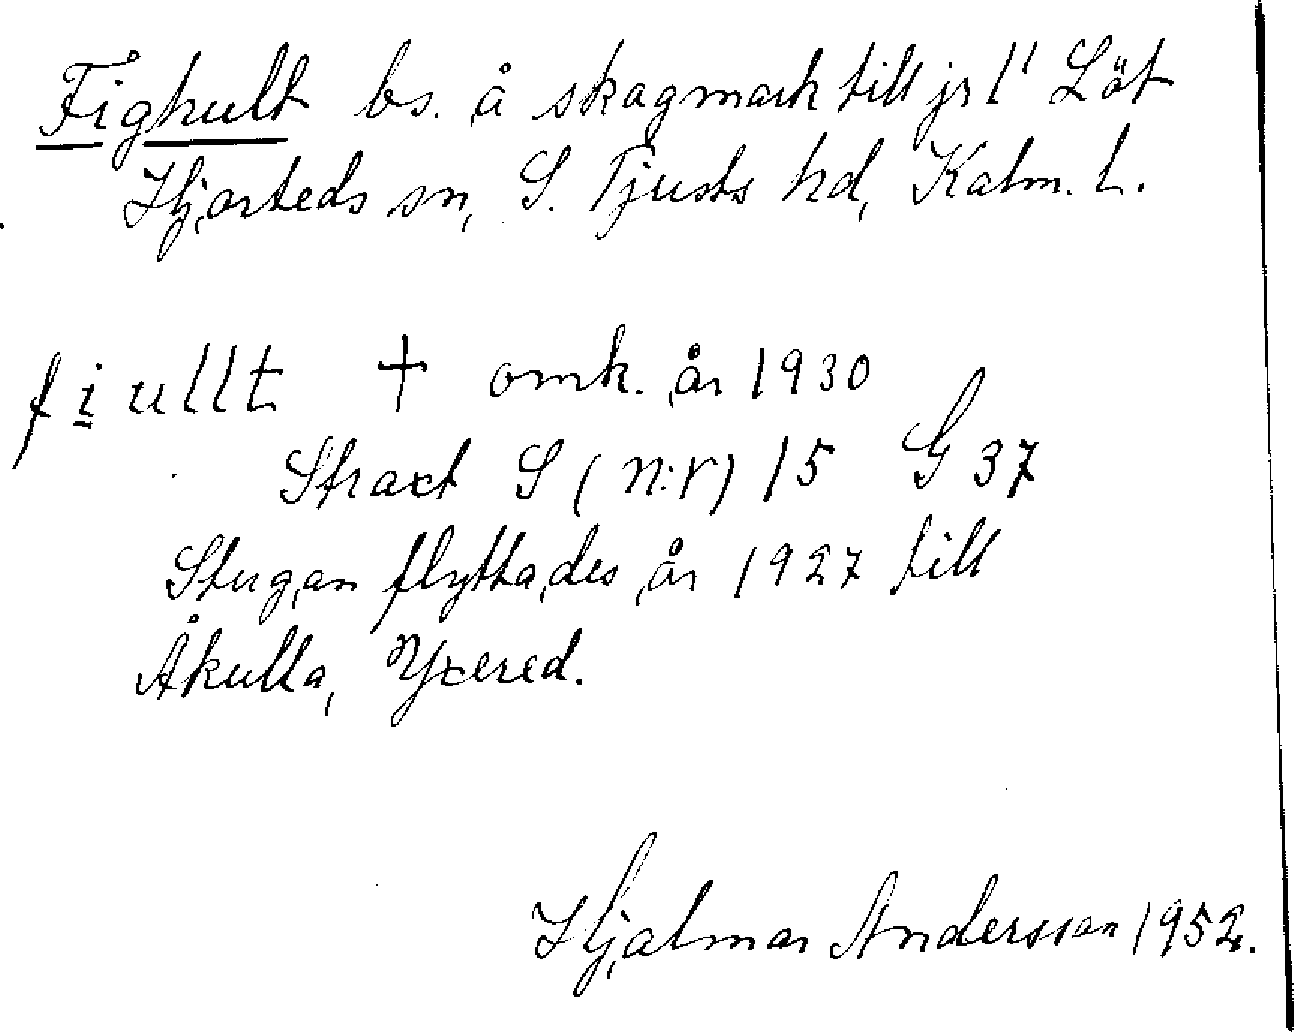 Fighult bs. å skogmark till jr 1¹ Löt
Hjorteds sn, S. Tjusts hd, Kalm. L.
fiullt † omk. år 1930
Straxt S (n:r) 15 G 37
Stugan flyttades år 1927 till
Åkulla, Yxered.
Hjalmar Andersson 1952.